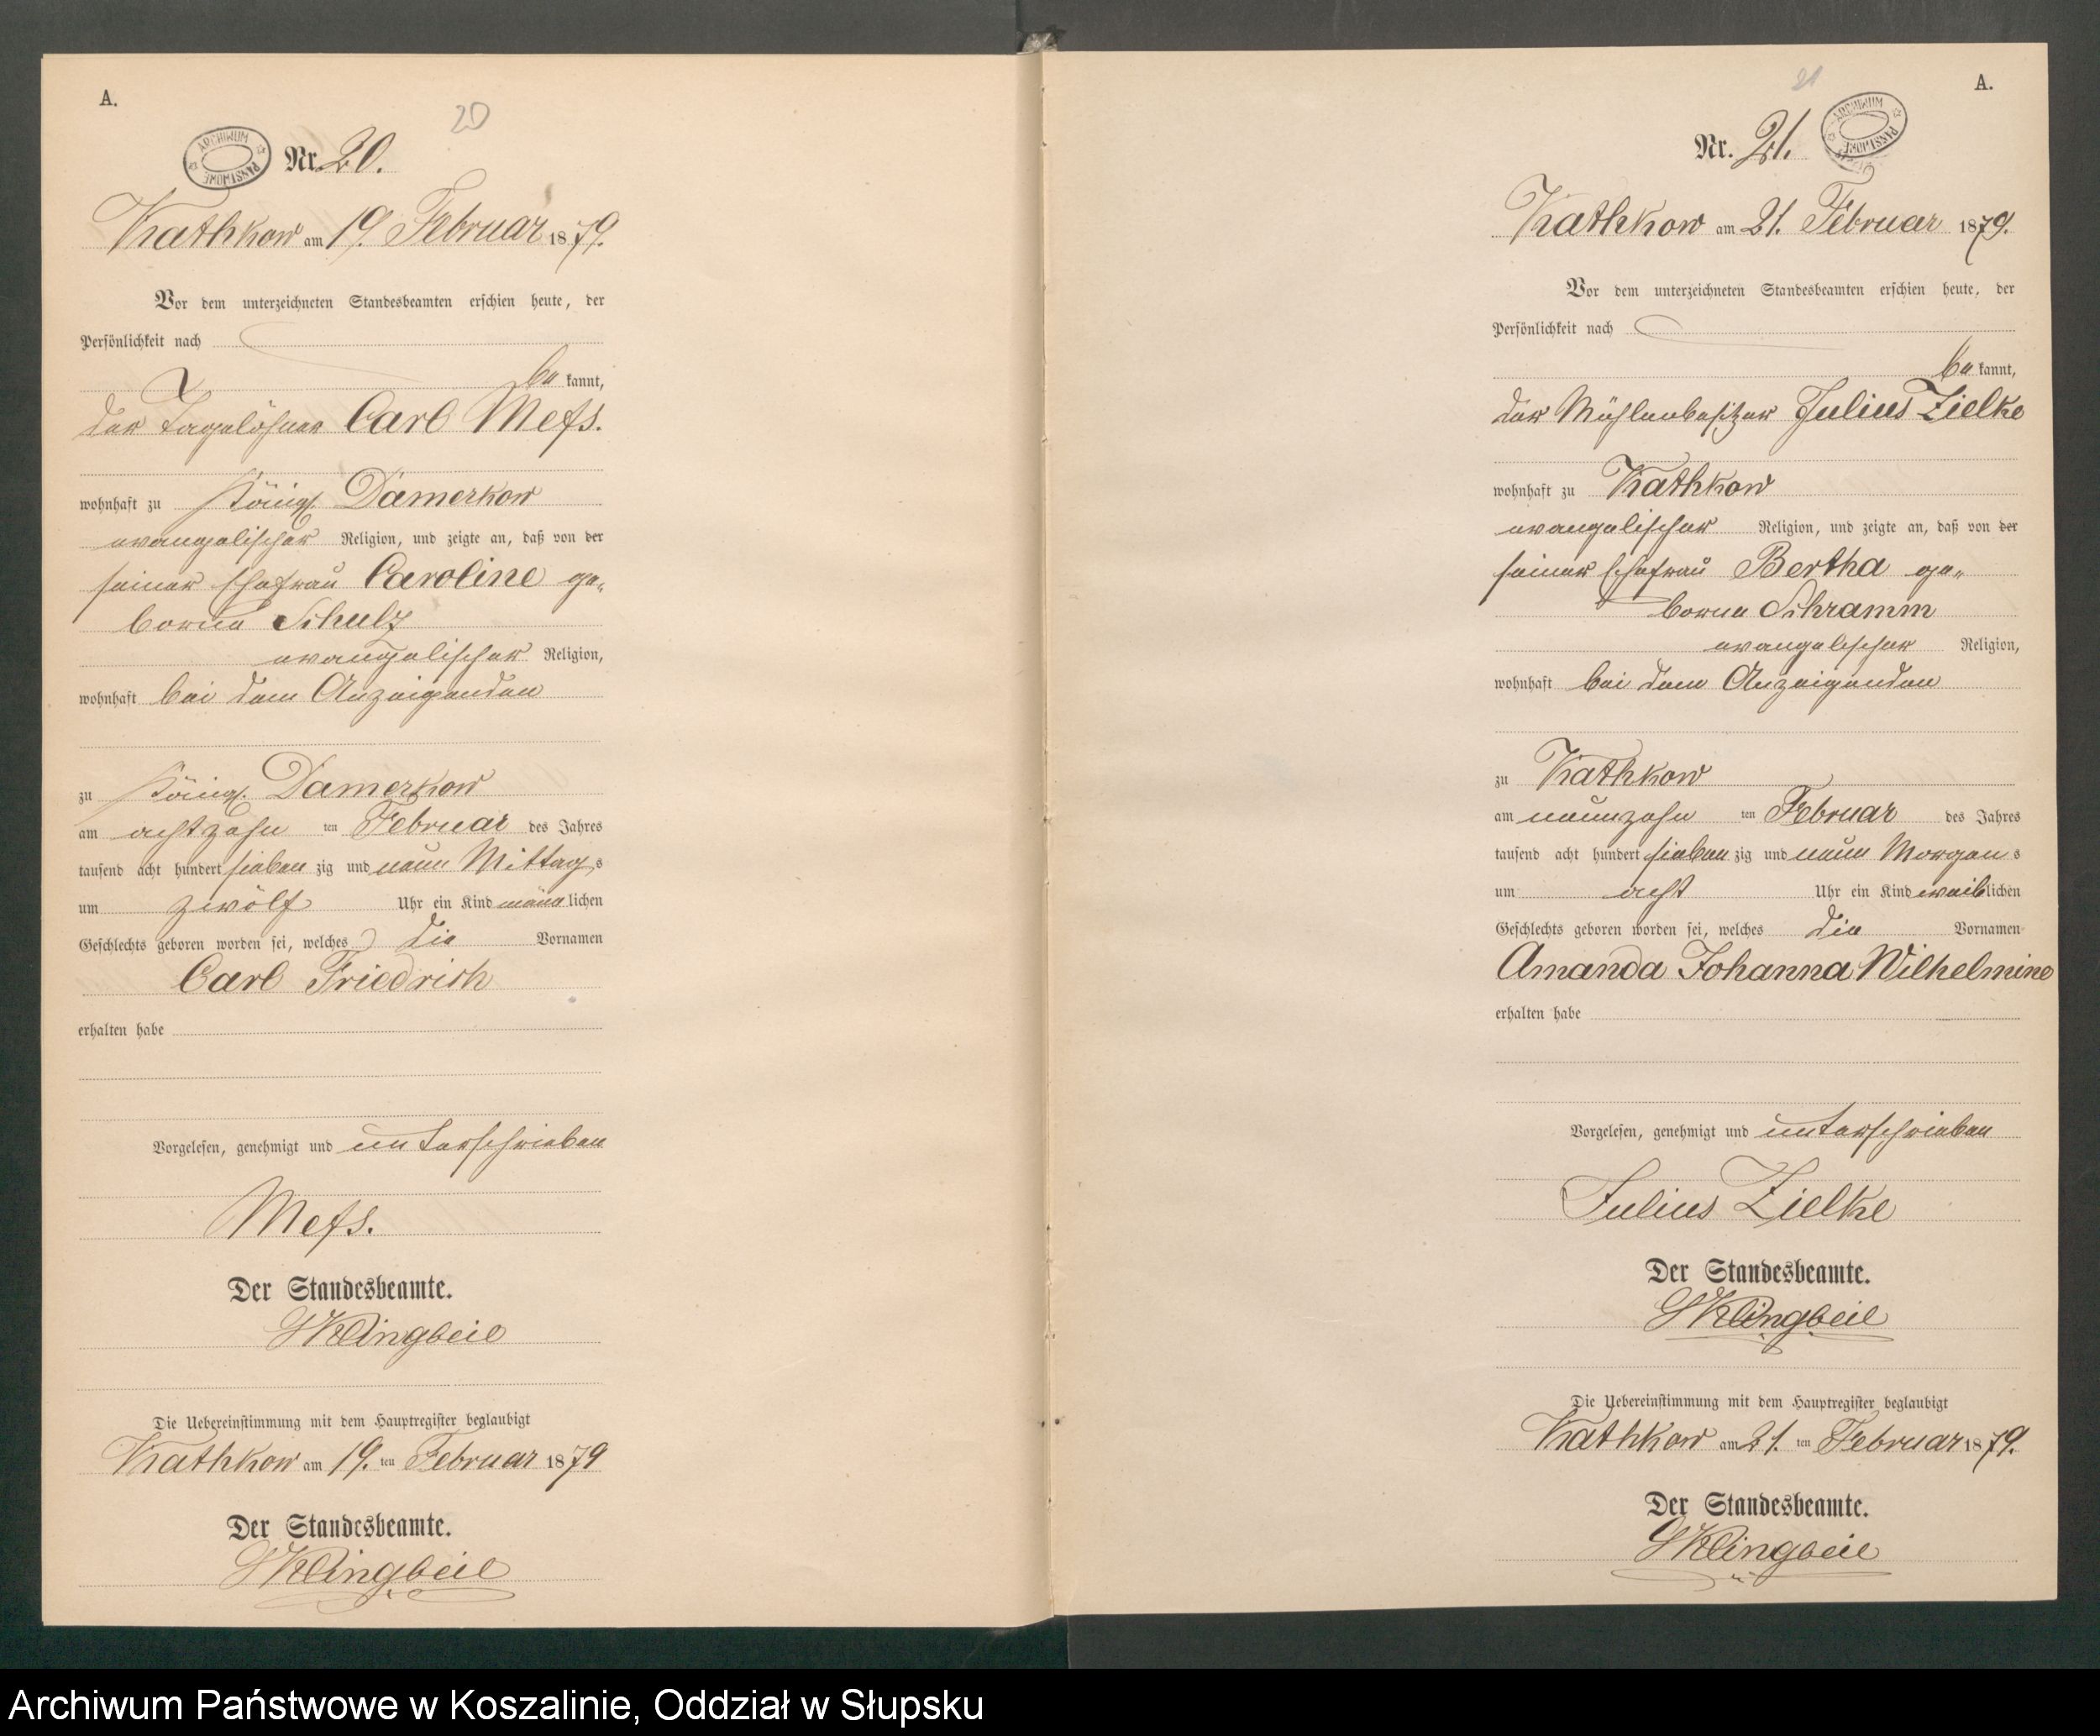 A.
20
ARCHIWUM PAŃSTWOWE
Nr. 20.
Kathkow am 19. Februar 1879.
Vor dem unterzeichneten Standesbeamten erschien heute, der
Persönlichkeit nach
be kannt,
der Tagelöhner Carl Mefs.
wohnhaft zu Königl. Damerkow
evangelischer Religion, und zeigte an, daß von der
seiner Ehefrau Caroline ge„
borne Schulz
evangelischer Religion,
wohnhaft bei dem Anzeigenden
zu Königl. Damerkow
am achtzehn ten Februar des Jahres
tausend acht hundert sieben zig und neun Mittag s
um zwölf Uhr ein Kind männ lichen
Geschlechts geboren worden sei, welches die Vornamen
Carl Friedrich
erhalten habe
Vorgelesen, genehmigt und unterschrieben
Mefs.
Der Standesbeamte.
Klingbeil
Die Uebereinstimmung mit dem Hauptregister beglaubigt
Kathkow am 19. ten Februar 1879
Der Standesbeamte.
Klingbeil
21
A.
Nr. 21.
ARCHIWUM PAŃSTWOWE
Kathkow am 21. Februar 1879.
Vor dem unterzeichneten Standesbeamten erschien heute, der
Persönlichkeit nach
be kannt,
der Mühlenbesitzer Julius Zielke
wohnhaft zu Kathkow
evangelischer Religion, und zeigte an, daß von der
seiner Ehefrau Bertha ge„
borne Schramm
evangelischer Religion,
wohnhaft bei dem Anzeigenden
zu Kathkow
am neunzehn ten Februar des Jahres
tausend acht hundert sieben zig und neun Morgen s
um acht Uhr ein Kind weib lichen
Geschlechts geboren worden sei, welches die Vornamen
Amanda Johanna Wilhelmine
erhalten habe
Vorgelesen, genehmigt und unterschrieben
Julius Zielke
Der Standesbeamte.
Klingbeil
Die Uebereinstimmung mit dem Hauptregister beglaubigt
Kathkow am 21. ten Februar 1879.
Der Standesbeamte.
Klingbeil
Archiwum Państwowe w Koszalinie, Oddział w Słupsku